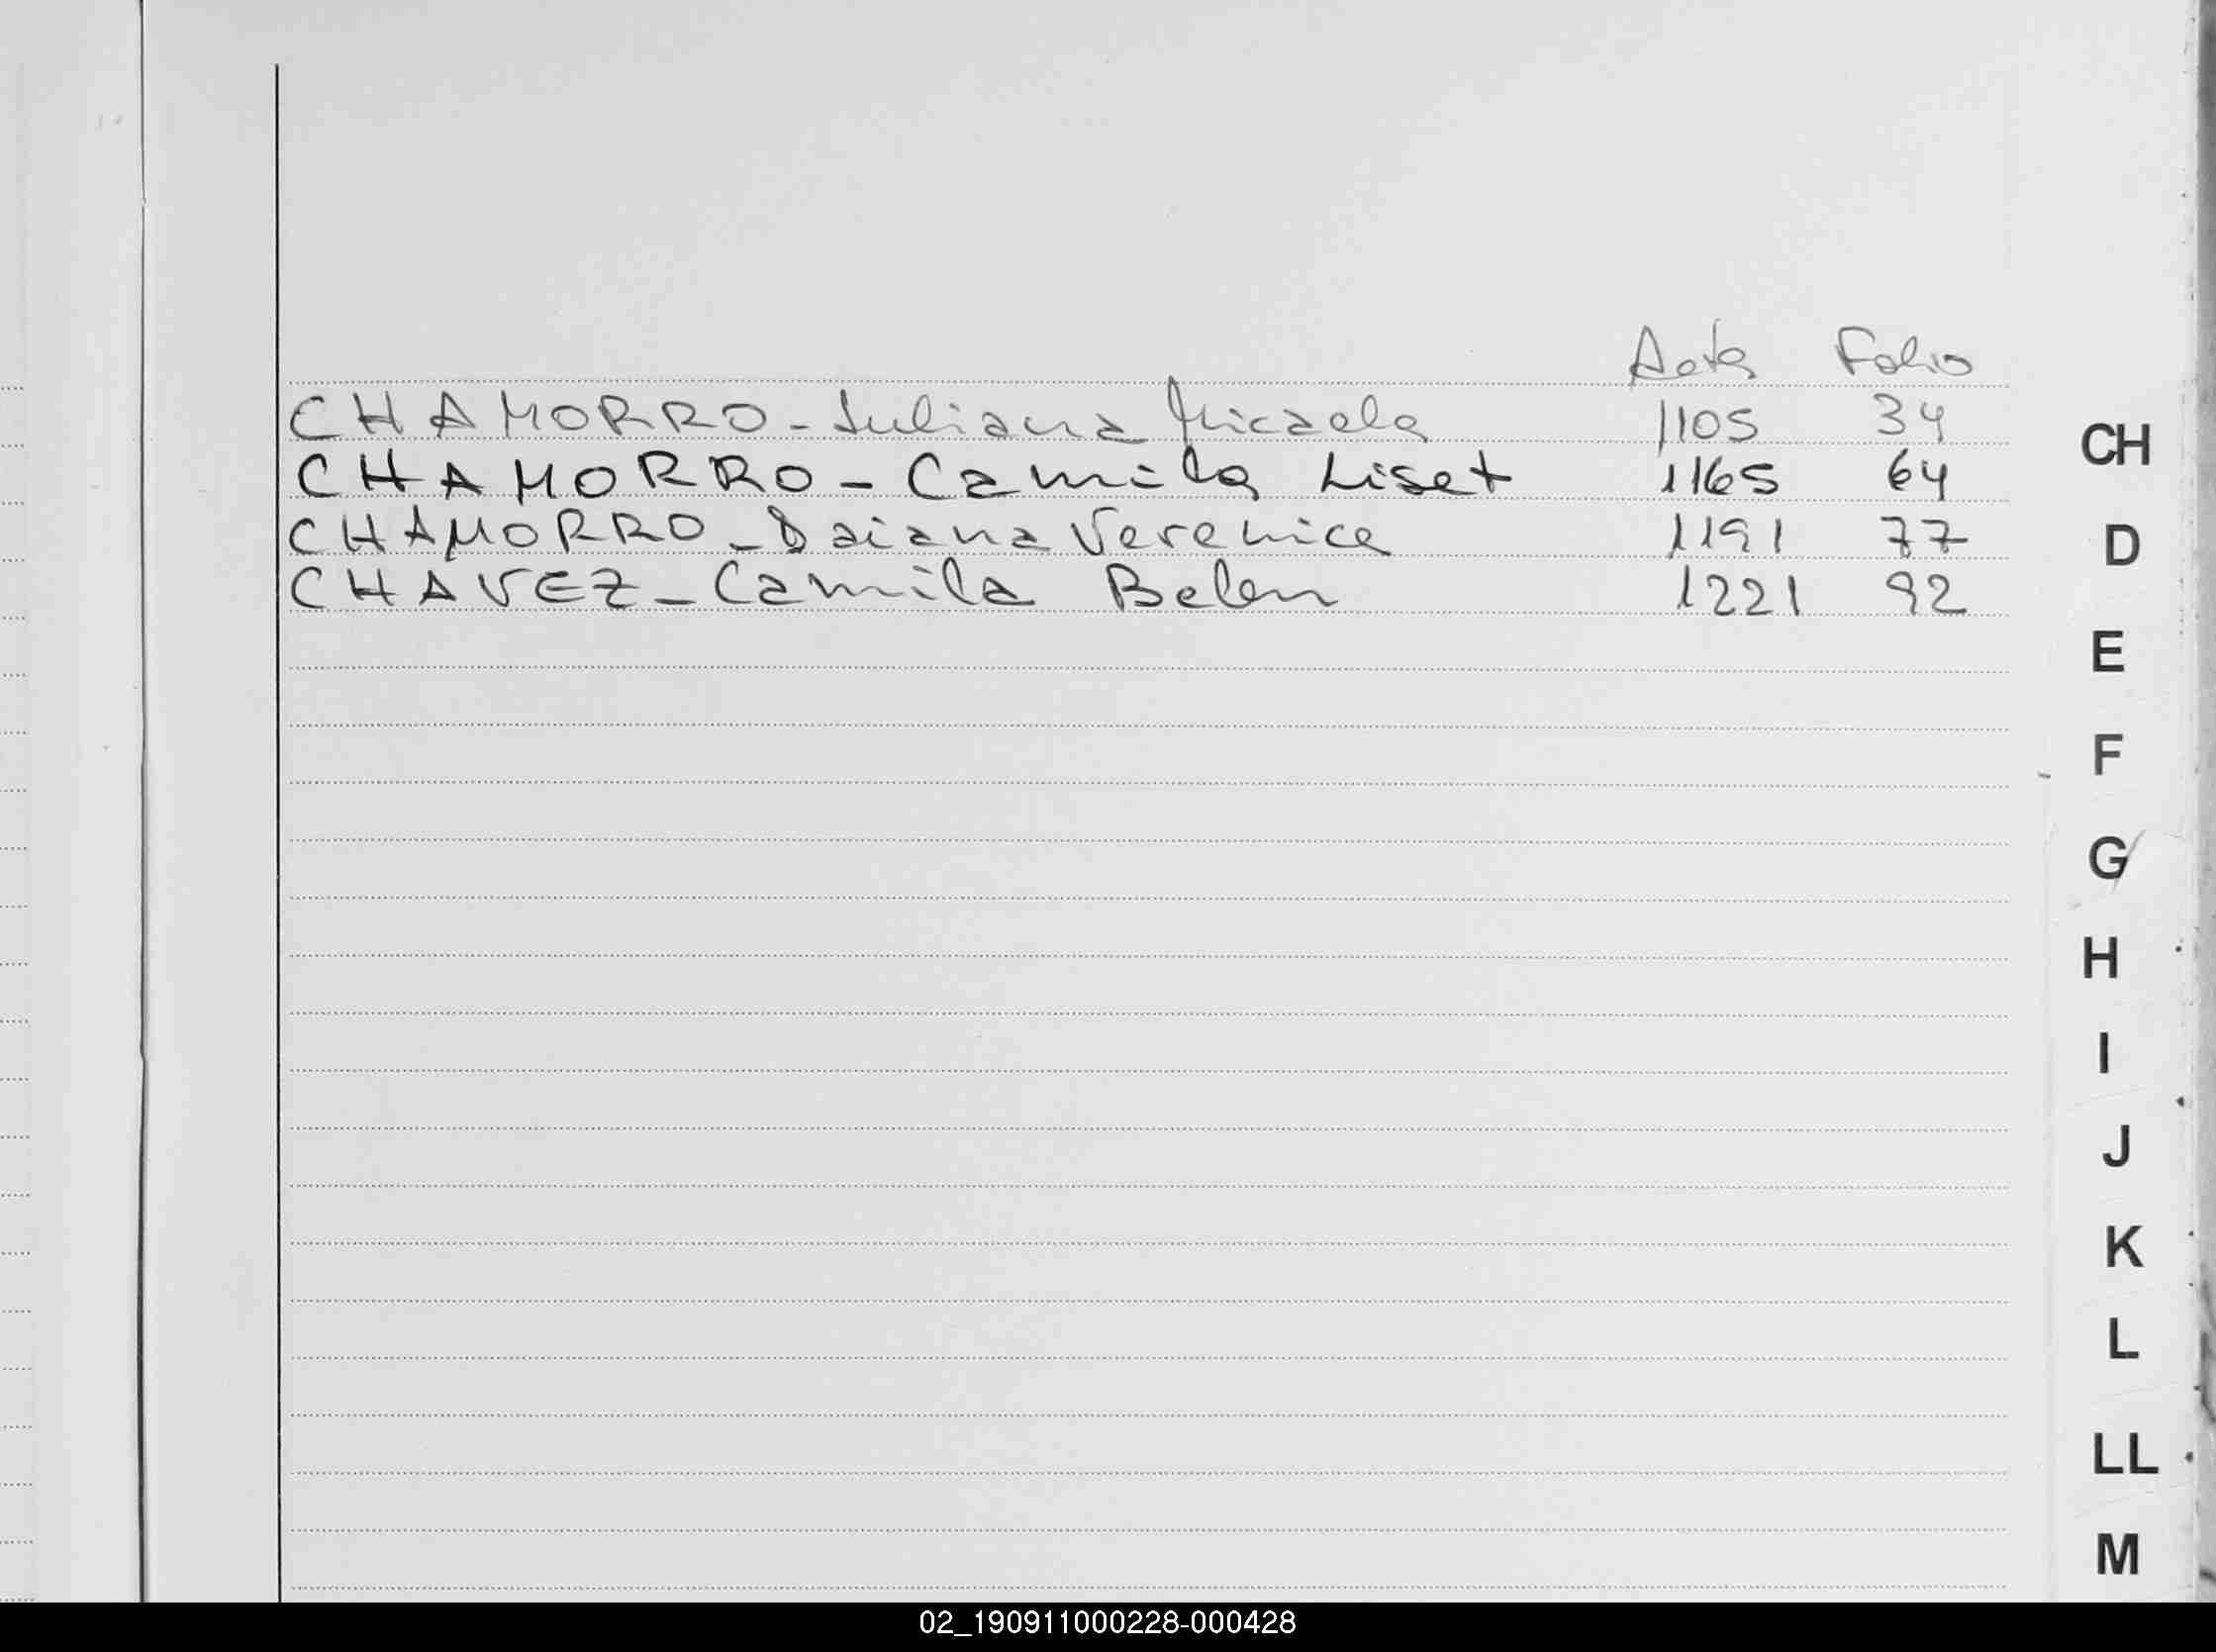 Acta Folio
CHAMORRO - Juliana Micaela 1105 34
CHAMORRO - Camila Liset 1165 64
CHAMORRO - Daiana Verenice 1191 77
CHAVEZ - Camila Belen 1221 92
CH
D
E
F
G
H
I
J
K
L
LL
M
02_190911000228-000428